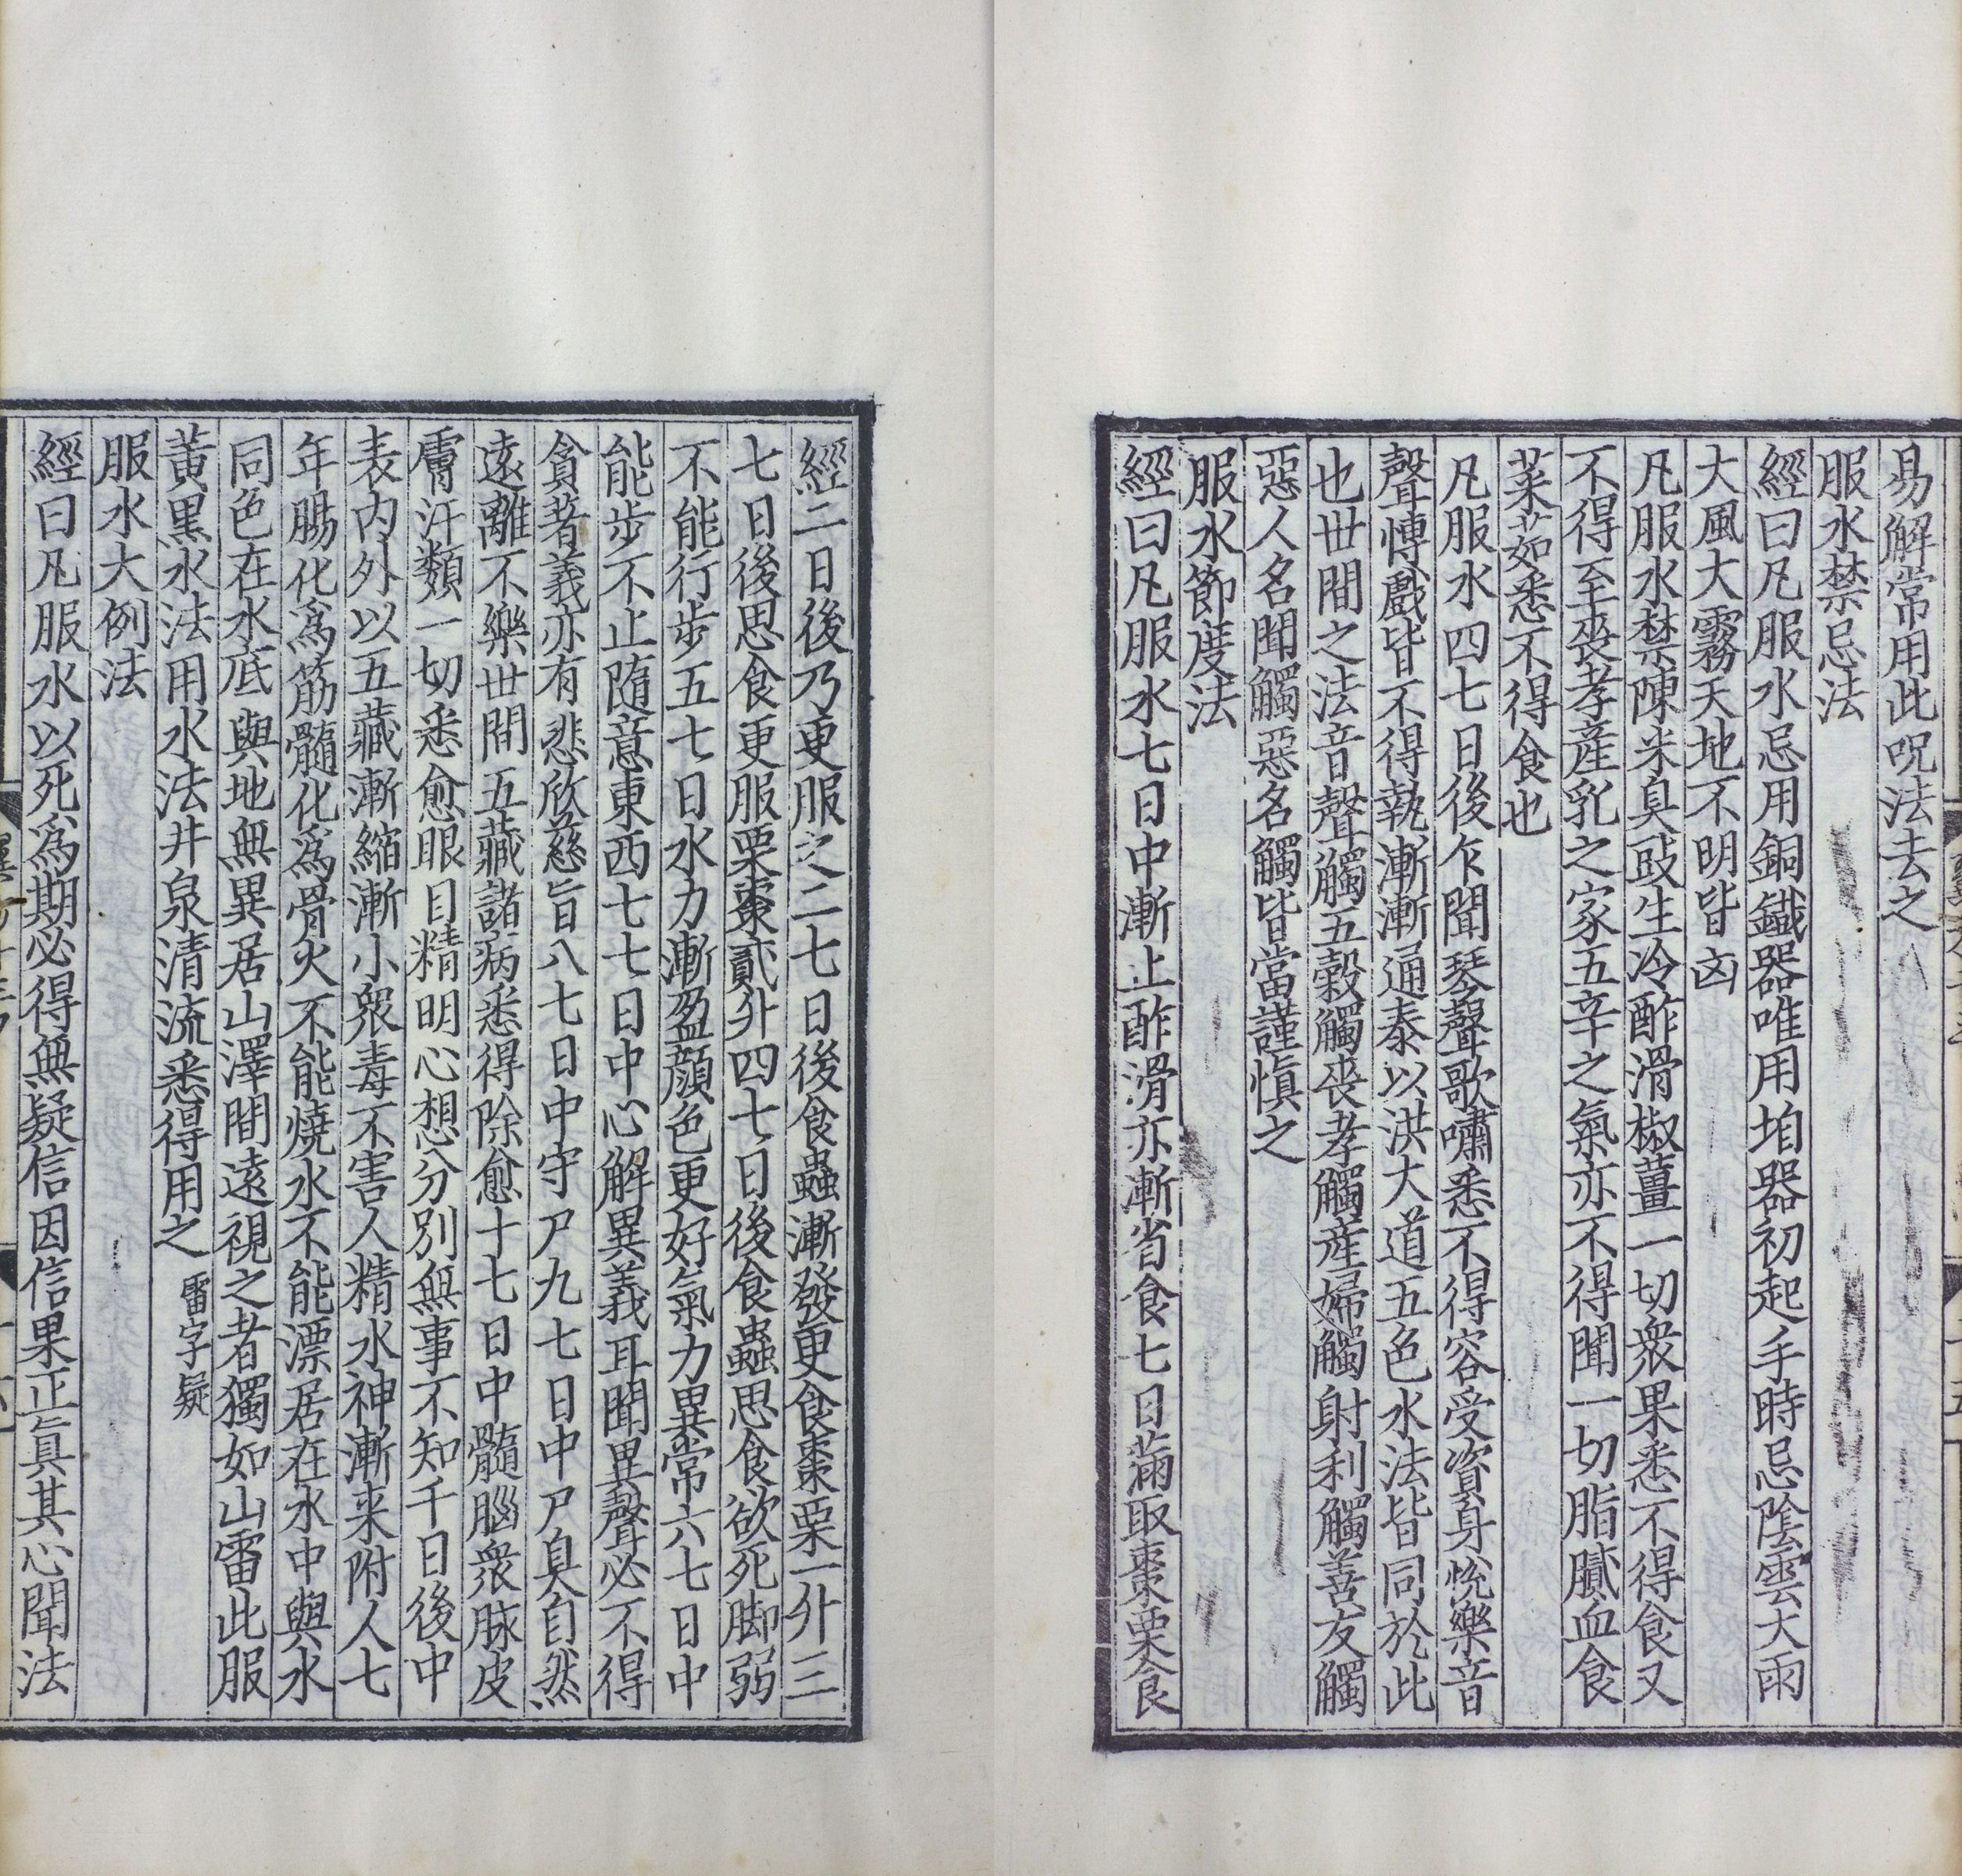 易解常用此呪法去之
服水禁忌法
經曰凡服水忌用銅鐵器唯用坩器初起手時忌陰雲大雨
大風大霧天地不明皆凶
凡服水禁陳米臭豉生冷酢滑椒薑一切衆果悉不得食又
不得至喪孝産乳之家五辛之氣亦不得聞一切脂膩血食
菜茹悉不得食也
凡服水四七日後乍聞琴聲歌嘯悉不得容受資身悅樂音
聲博戲皆不得執漸漸通泰以洪大道五色水法皆同於此
也世間之法音聲觸五穀觸喪孝觸産婦觸射利觸善友觸
惡人名聞觸惡名觸皆當謹愼之
服水節度法
經曰凡服水七日中漸止酢滑亦漸省食七日滿取棗栗食
經二日後乃更服之二七日後食蟲漸發更食棗栗一升三
七日後思食更服栗棗貳升四七日後食蟲思食欲死脚弱
不能行步五七日水力漸盈顔色更好氣力異常六七日中
能步不止隨意東西七七日中心解異義耳聞異聲必不得
貪著義亦有悲欣慈旨八七日中守尸九七日中尸臭自然
遠離不樂世間五藏諸病悉得除愈十七日中髓腦衆脉皮
膚汗類一切悉愈眼目精明心想分別無事不知千日後中
表内外以五藏漸漸縮漸小衆毒不害人精水神漸来附人七
年腸化爲筋髓化爲骨火不能燒水不能漂居在水中與水
同色在水底與地無異居山澤間遠視之者獨如山雷此服
黃黑水法用水法井泉清流悉得用之 雷字疑
服水大例法
經曰凡服水以死爲期必得無疑信因信果正眞其心聞法